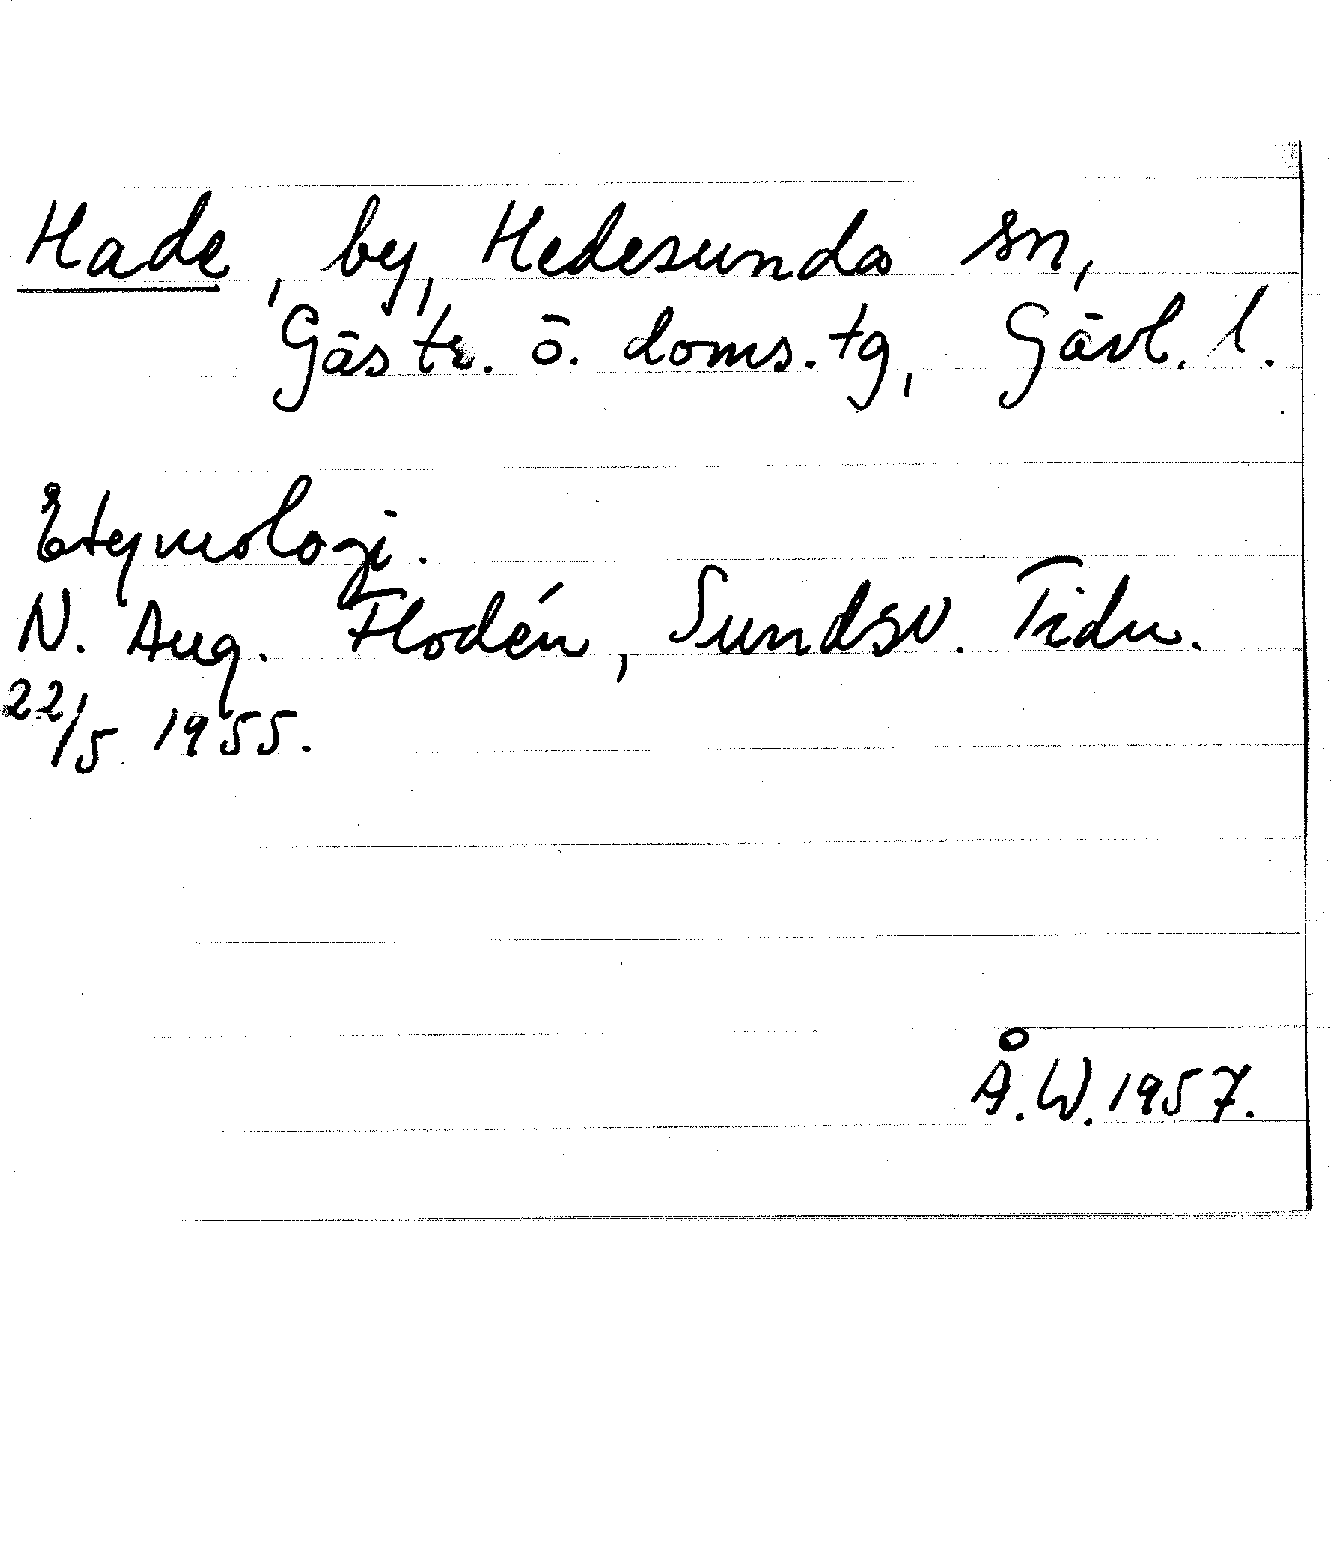 Hade, by, Hedesunda sn,
Gästr. ö. doms. tg, Gävl. l.
Etymologi.
N. Aug. Flodén, Sundsv. Tidn.
22/5 1955.
Å. W. 1957.